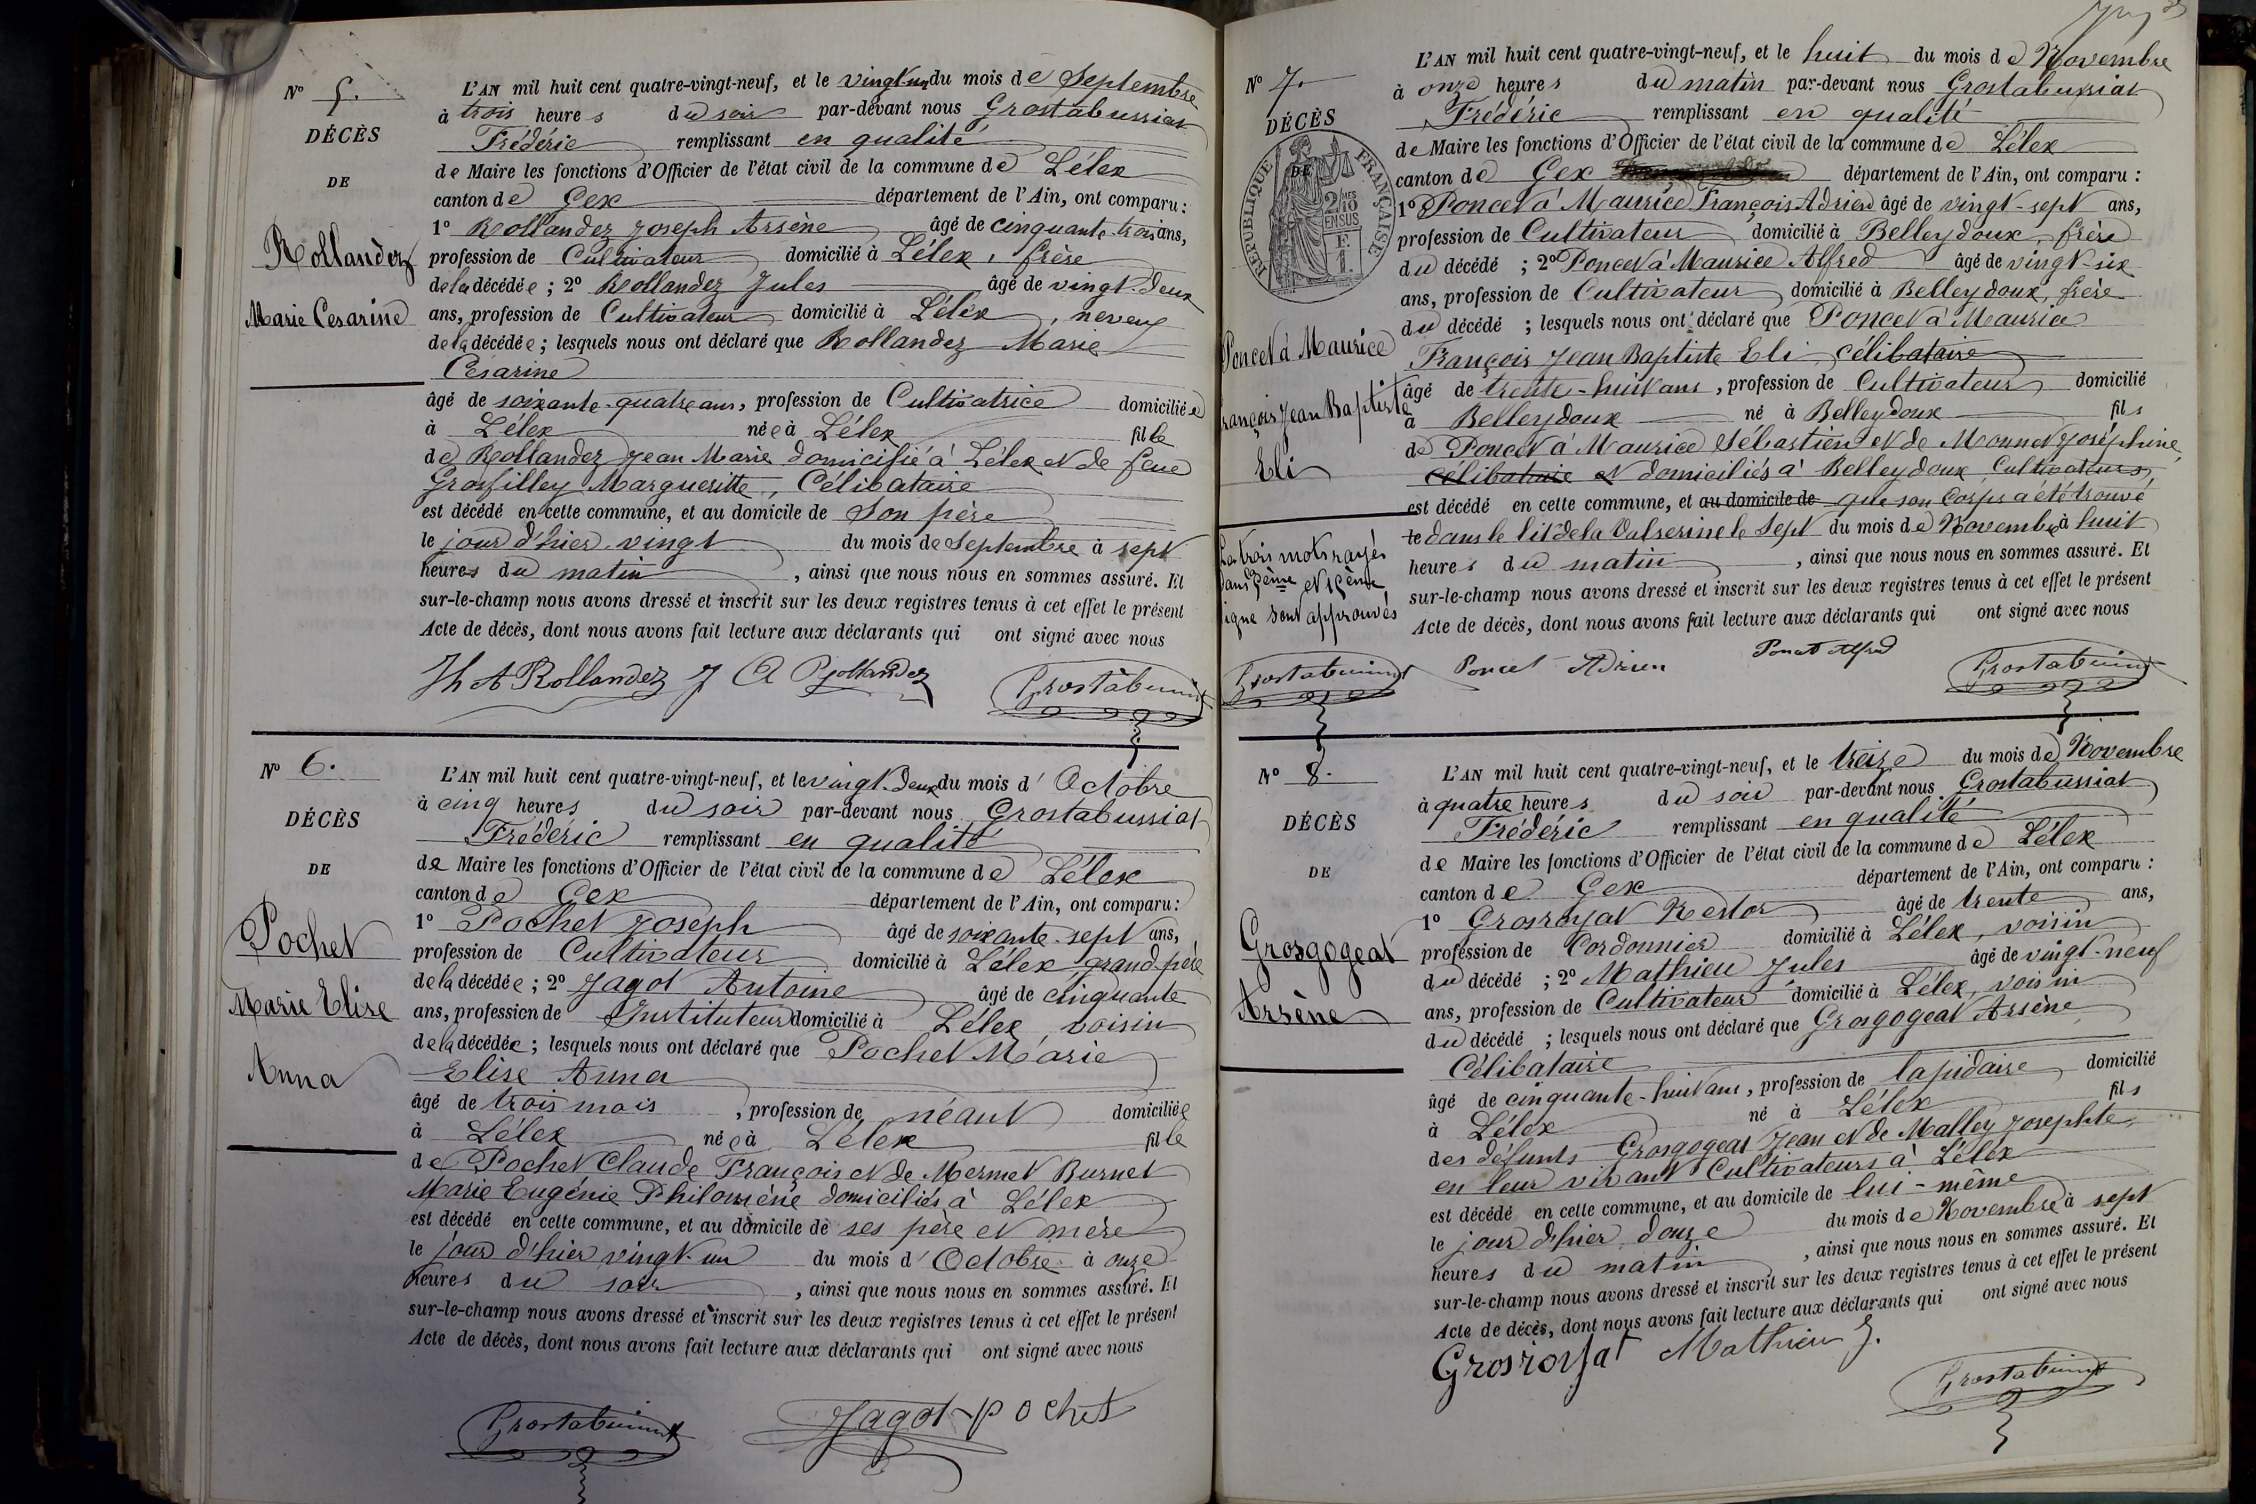 No 5.
DÉCÈS
DE
Rollandez
Marie Cesarine
L'AN mil huit cent quatre-vingt-neuf, et le vingt un du mois de Septembre
à trois heures du soir par-devant nous Grostabussiat
Frédéric remplissant en qualité
de Maire les fonctions d'Officier de l'état civil de la commune de Lélex
canton de Gex département de l'Ain, ont comparu :
1o Rollandez Joseph Arsène âgé de cinquante trois ans,
profession de Cultivateur domicilié à Lélex, frère
de la décédée ; 2o Rollandez Jules âgé de vingt-deux
ans, profession de Cultivateur domicilié à Lélex, neveu
de la décédée ; lesquels nous ont déclaré que Rollandez Marie
Césarine
âgé de soixante-quatre ans, profession de Cultivatrice domiciliée
à Lélex née à Lélex fille
de Rollandez Jean Marie domicilié à Lélex et de feue
Grosfilley Margueritte, Célibataire
est décédé en cette commune, et au domicile de Son père
le jour d'hier vingt du mois de Septembre à sept
heures du matin, ainsi que nous nous en sommes assuré. Et
sur-le-champ nous avons dressé et inscrit sur les deux registres tenus à cet effet le présent
Acte de décès, dont nous avons fait lecture aux déclarants qui ont signé avec nous
Jh A Rollandez J A Rollandez Grostabussiat
No 6.
DÉCÈS
DE
Pochet
Marie Elise
Anna
L'AN mil huit cent quatre-vingt-neuf, et le vingt-deux du mois d'Octobre
à cinq heures du soir par-devant nous Grostabussiat
Frédéric remplissant en qualité
de Maire les fonctions d'Officier de l'état civil de la commune de Lélex
canton de Gex département de l'Ain, ont comparu :
1o Pochet Joseph âgé de soixante-sept ans,
profession de Cultivateur domicilié à Lélex grand-père
de la décédée ; 2o Jagot Antoine âgé de cinquante
ans, profession de Instituteur domicilié à Lélex voisin
de la décédée ; lesquels nous ont déclaré que Pochet Marie
Elise Anna
âgé de trois mois, profession de néant domiciliée
à Lélex née à Lélex fille
de Pochet Claude François et de Mermet Burnet
Marie Eugénie Philomène domiciliés à Lélex
est décédé en cette commune, et au domicile de ses père et mère
le jour d'hier vingt-un du mois d'Octobre à onze
heures du soir, ainsi que nous nous en sommes assuré. Et
sur-le-champ nous avons dressé et inscrit sur les deux registres tenus à cet effet le présent
Acte de décès, dont nous avons fait lecture aux déclarants qui ont signé avec nous
Grostabussiat Jagot Pochet
No 7.
DÉCÈS
DE
RÉPUBLIQUE FRANÇAISE
2/10 EN SUS
F.
1.
Poncet à Maurice
François Jean Baptiste
Eli
L'AN mil huit cent quatre-vingt-neuf, et le huit du mois de Novembre
à onze heures du matin par-devant nous Grostabussiat
Frédéric remplissant en qualité
de Maire les fonctions d'Officier de l'état civil de la commune de Lélex
canton de Gex département de l'Ain, ont comparu :
1o Poncet à Maurice François Adrien âgé de vingt-sept ans,
profession de Cultivateur domicilié à Belleydoux, frère
du décédé ; 2o Poncet à Maurice Alfred âgé de vingt-six
ans, profession de Cultivateur domicilié à Belleydoux, frère
du décédé ; lesquels nous ont déclaré que Poncet à Maurice
François Jean Baptiste Eli célibataire
âgé de trente-huit ans, profession de Cultivateur domicilié
à Belleydoux né à Belleydoux fils
de Poncet à Maurice Sébastien et de Monnet Joséphine,
Célibataire et domiciliés à Belleydoux Cultivateurs,
est décédé en cette commune, et au domicile de que son Corps a été trouvé
le dans le lit de la Valserine le Sept du mois de Novembre à huit
heures du matin, ainsi que nous nous en sommes assuré. Et
sur-le-champ nous avons dressé et inscrit sur les deux registres tenus à cet effet le présent
Acte de décès, dont nous avons fait lecture aux déclarants qui ont signé avec nous
Les trois mots rayés
dans
ligne sont approuvés
Grostabussiat Poncet Adrien Poncet Alfred Grostabussiat
No 8.
DÉCÈS
DE
Grosgogeat
Arsène
L'AN mil huit cent quatre-vingt-neuf, et le treize du mois de Novembre
à quatre heures du soir par-devant nous Grostabussiat
Frédéric remplissant en qualité
de Maire les fonctions d'Officier de l'état civil de la commune de Lélex
canton de Gex département de l'Ain, ont comparu :
1o Grosroyat Nestor âgé de trente ans,
profession de Cordonnier domicilié à Lélex, voisin
du décédé ; 2o Mathieu Jules âgé de vingt-neuf
ans, profession de Cultivateur domicilié à Lélex, voisin
du décédé ; lesquels nous ont déclaré que Grosgogeat Arsène
Célibataire
âgé de cinquante-huit ans, profession de lapidaire domicilié
à Lélex né à Lélex fils
des défunts Grosgogeat Jean et de Malley Josephte,
en leur vivant Cultivateurs à Lélex
est décédé en cette commune, et au domicile de lui-même
le jour d'hier douze du mois de Novembre à sept
heures du matin, ainsi que nous nous en sommes assuré. Et
sur-le-champ nous avons dressé et inscrit sur les deux registres tenus à cet effet le présent
Acte de décès, dont nous avons fait lecture aux déclarants qui ont signé avec nous
Grosroyat Mathieu J.
Grostabussiat